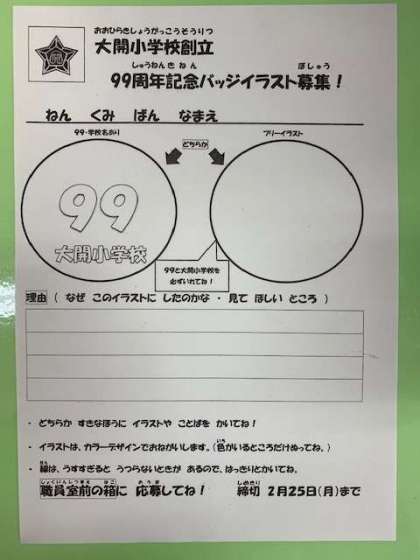 おおひらきしょうがっこうそうりつ
大開小学校創立
しゅうねんきねん ぼしゅう
99周年記念バッジイラスト募集！
ねん くみ ばん なまえ
99・学校名あり どちらか フリーイラスト
99
大開小学校
99と大開小学校を
必ずいれてね！
理由（ なぜ このイラストに したのかな ・ 見て ほしい ところ ）
・ どちらか すきなほうに イラストや ことばを かいてね！
・ イラストは、カラーデザインでおねがいします。（色がいるところだけぬってね。）
・ 線は、うすすぎると うつらないときが あるので、はっきりとかいてね。
しょくいんしつまえ はこ おうぼ しめきり
職員室前の箱に 応募してね！ 締切 2月25日(月)まで